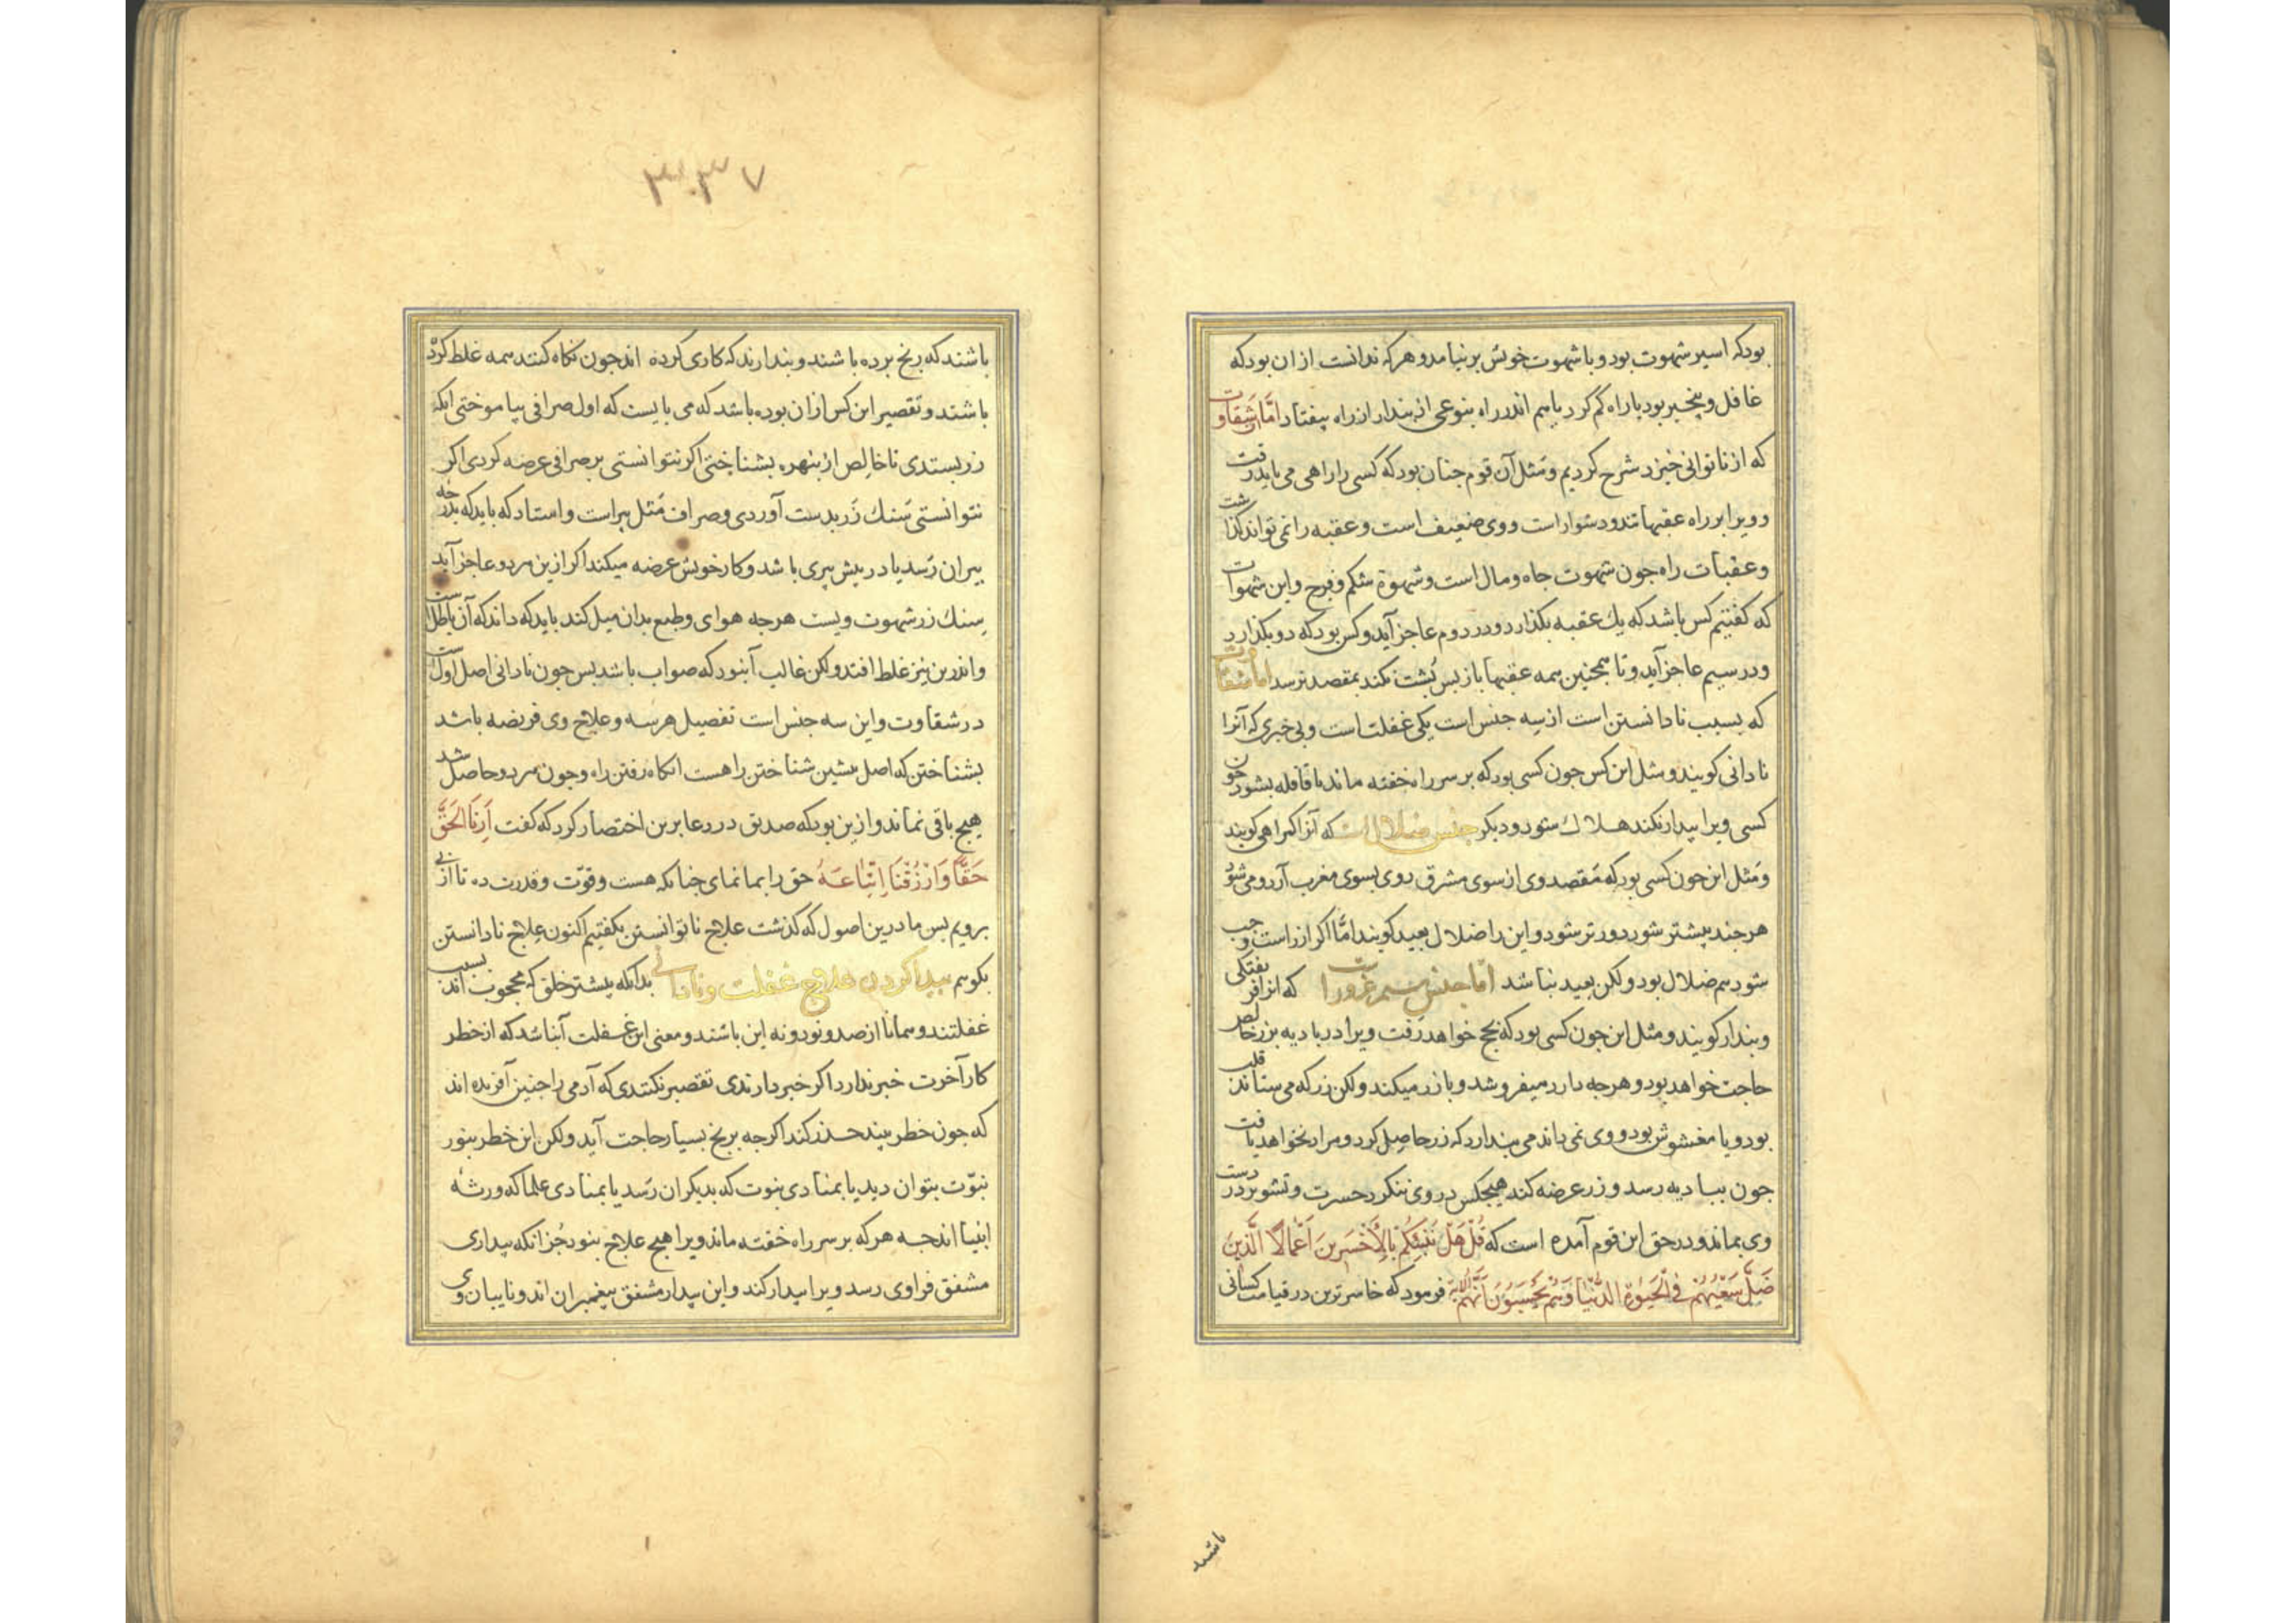 بودکه اسیر شهوت بود و با شهوت خویش برنیامد و هرکه ندانست ازان بودکه
غافل و بیخبر بود یا راه کم کرد یا هم اندر راه بنوعی از بندار از راه بیفتاد اما شقاوت
که از ناتوانی خیزد شرح کردیم و مثل آن قوم جنان بود که کسی را راهی می باید رفت
و ویرا بر راه عقبها تند و دشوار است و وی ضعیف است و عقبه را نمی تواند کذاشت
و عقبات راه جون شهوت جاه و مال است و شهوة شکم و فرج و این شهوات
که کفتیم کس باشد که یك عقبه بکذارد و در دوم عاجز آید و کس بود که دو بکذارد
و در سیم عاجز آید و تا همجنین همه عقبها باز بس بشت نکند بمقصد نرسد اما شقاوت
که بسبب نادانستن است از سه جنس است یکی غفلت است و بی خبری که آنرا
نادانی کویند و مثل این کس جون کسی بود که بر سر راه خفته ماند تا قافله بشود جون
کسی ویرا بیدار نکند هلاك شود و دیکر جنس ضلالات که آنرا کمراهی کویند
و مثل این جون کسی بود که مقصد وی از سوی مشرق روی بسوی مغرب آرد و می شود
هرجند بیشتر شود دورتر شود و این را ضلال بعید کویند اما اکر از راست و جب
شود هم ضلال بود و لکن بعید نباشد اما جنس سیم غرورات که انرا فریفتکی
و بندار کویند و مثل این جون کسی بود که بحج خواهد رفت ویرا در بادیه بزر خالص
حاجت خواهد بود و هرجه دارد میفروشد و با زر میکند و لکن زر که می ستاند قلب
بود و یا مغشوش بود و وی نمی داند می بندارد که زر حاصل کرد و مراد بخواهد یافت
جون ببادیه رسد و زر عرضه کند هیجکس در وی ننکرد حسرت و تشویر در دست
وی بماند و در حق این قوم آمده است که قُلْ هَلْ نُنَبِّئُكُمْ بِالْأَخْسَرِينَ أَعْمَالًا الَّذِينَ
ضَلَّ سَعْيُهُمْ فِي الْحَيٰوةِ الدُّنْيَا وَهُمْ يَحْسَبُونَ أَنَّهُمْ الایة فرمود که خاسرترین در قیامت کسانی
باشند
۳۰۳۷
باشند که رنج برده باشند و بندارند که کاری کرده اند جون نکاه کنند همه غلط کرده
باشند و تقصیر این کس ازان بوده باشد که می بایست که اول صرافی بیاموختی آنکه
زر بستدی تا خالص از بنهره بشناختی اکر نتوانستی بر صرافی عرضه کردی اکر
نتوانستی سنك زر بدست آوردی و صراف مثل بیر است و استاد که باید که بدرجه
بیران رسد یا در بیش بیری باشد و کار خویش عرضه میکند اکر ازین هر دو عاجز آید
سنك زر شهوت ویست هرجه هوای و طبع بدان میل کند باید که داند که آن باطلست
و اندرین نیز غلط افتد و لکن غالب آنبود که صواب باشد بس جون نادانی اصل اولست
در شقاوت و این سه جنس است تفصیل هر سه و علاج وی فریضه باشد
بشناختن که اصل بیشین شناختن راهست انکاه رفتن راه و جون هر دو حاصل شد
هیج باقی نماند و ازین بود که صدیق در دعا برین اختصار کرد که کفت أَرِنَا الْحَقَّ
حَقًّا وَارْزُقْنَا اتِّبَاعَهُ حق را بما نمای جنانکه هست و قوّت و قدرت ده تا از بی
برویم بس ما درین اصول که کذشت علاج ناتوانستن بکفتیم اکنون علاج نادانستن
بکوییم بیدا کردن علاج غفلت و نادانی بدانکه بیشتر خلق که محجوب اند بسبب
غفلتند و همانا از صد و نود و نه این باشند و معنی این غفلت آنباشد که از خطر
کار آخرت خبر ندارد اکر خبر دارندی تقصیر نکنندی که آدمی را جنین آفریده اند
که جون خطر بیند حذر کند اکرجه برنج بسیار حاجت آید و لکن این خطر بنور
نبوّت بتوان دید یا بمنادی نبوت که بدیکران رسد یا بمنادی علما که ورثه
انبیا اند جه هر که بر سر راه خفته ماند ویرا هیج علاج نبود جُز آنکه بیداری
مشفق فراوی رسد و ویرا بیدار کند و این بیدار مشفق بیغمبران اند و نایبان وی